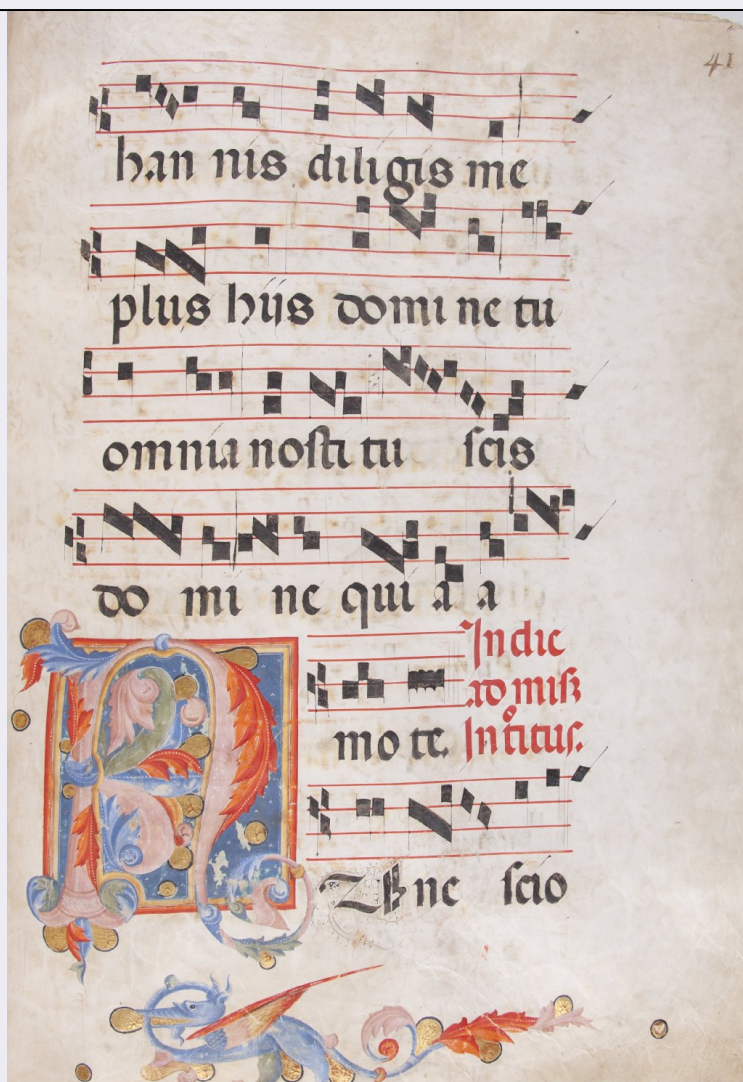 41
han nis diligis me
plus hijs domine tu
omnia nosti tu scis
do mi ne qui a a
In die
ad miss
mo te. Introitus.
Nunc scio